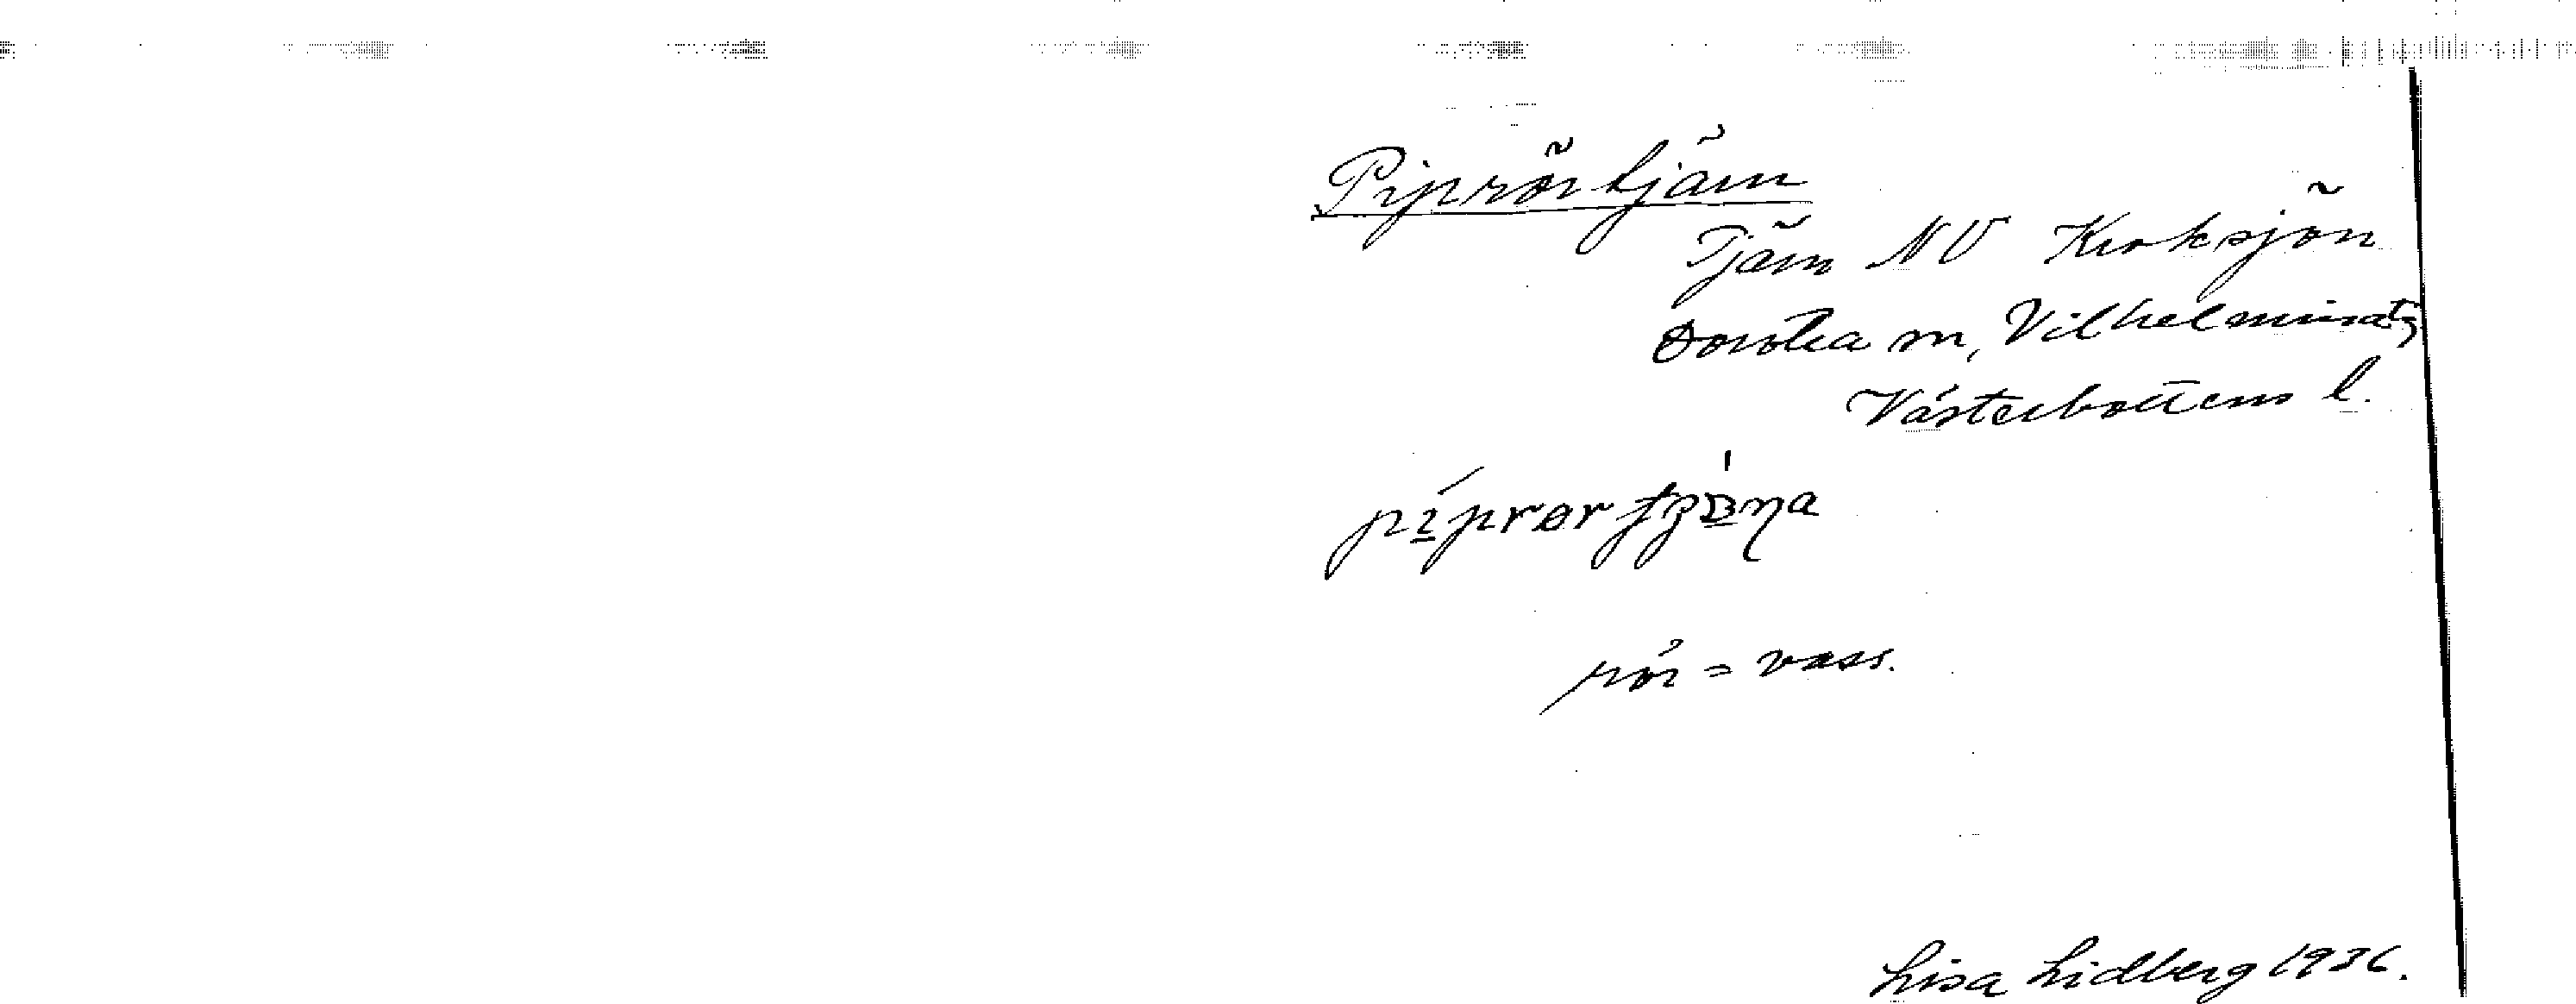 Piprörtjärn
Tjärn NV Kroksjön
Dorotea sn, Vilhelmina tg
Västerbottens l.
rör = vass.
Lisa Lidberg 1936.